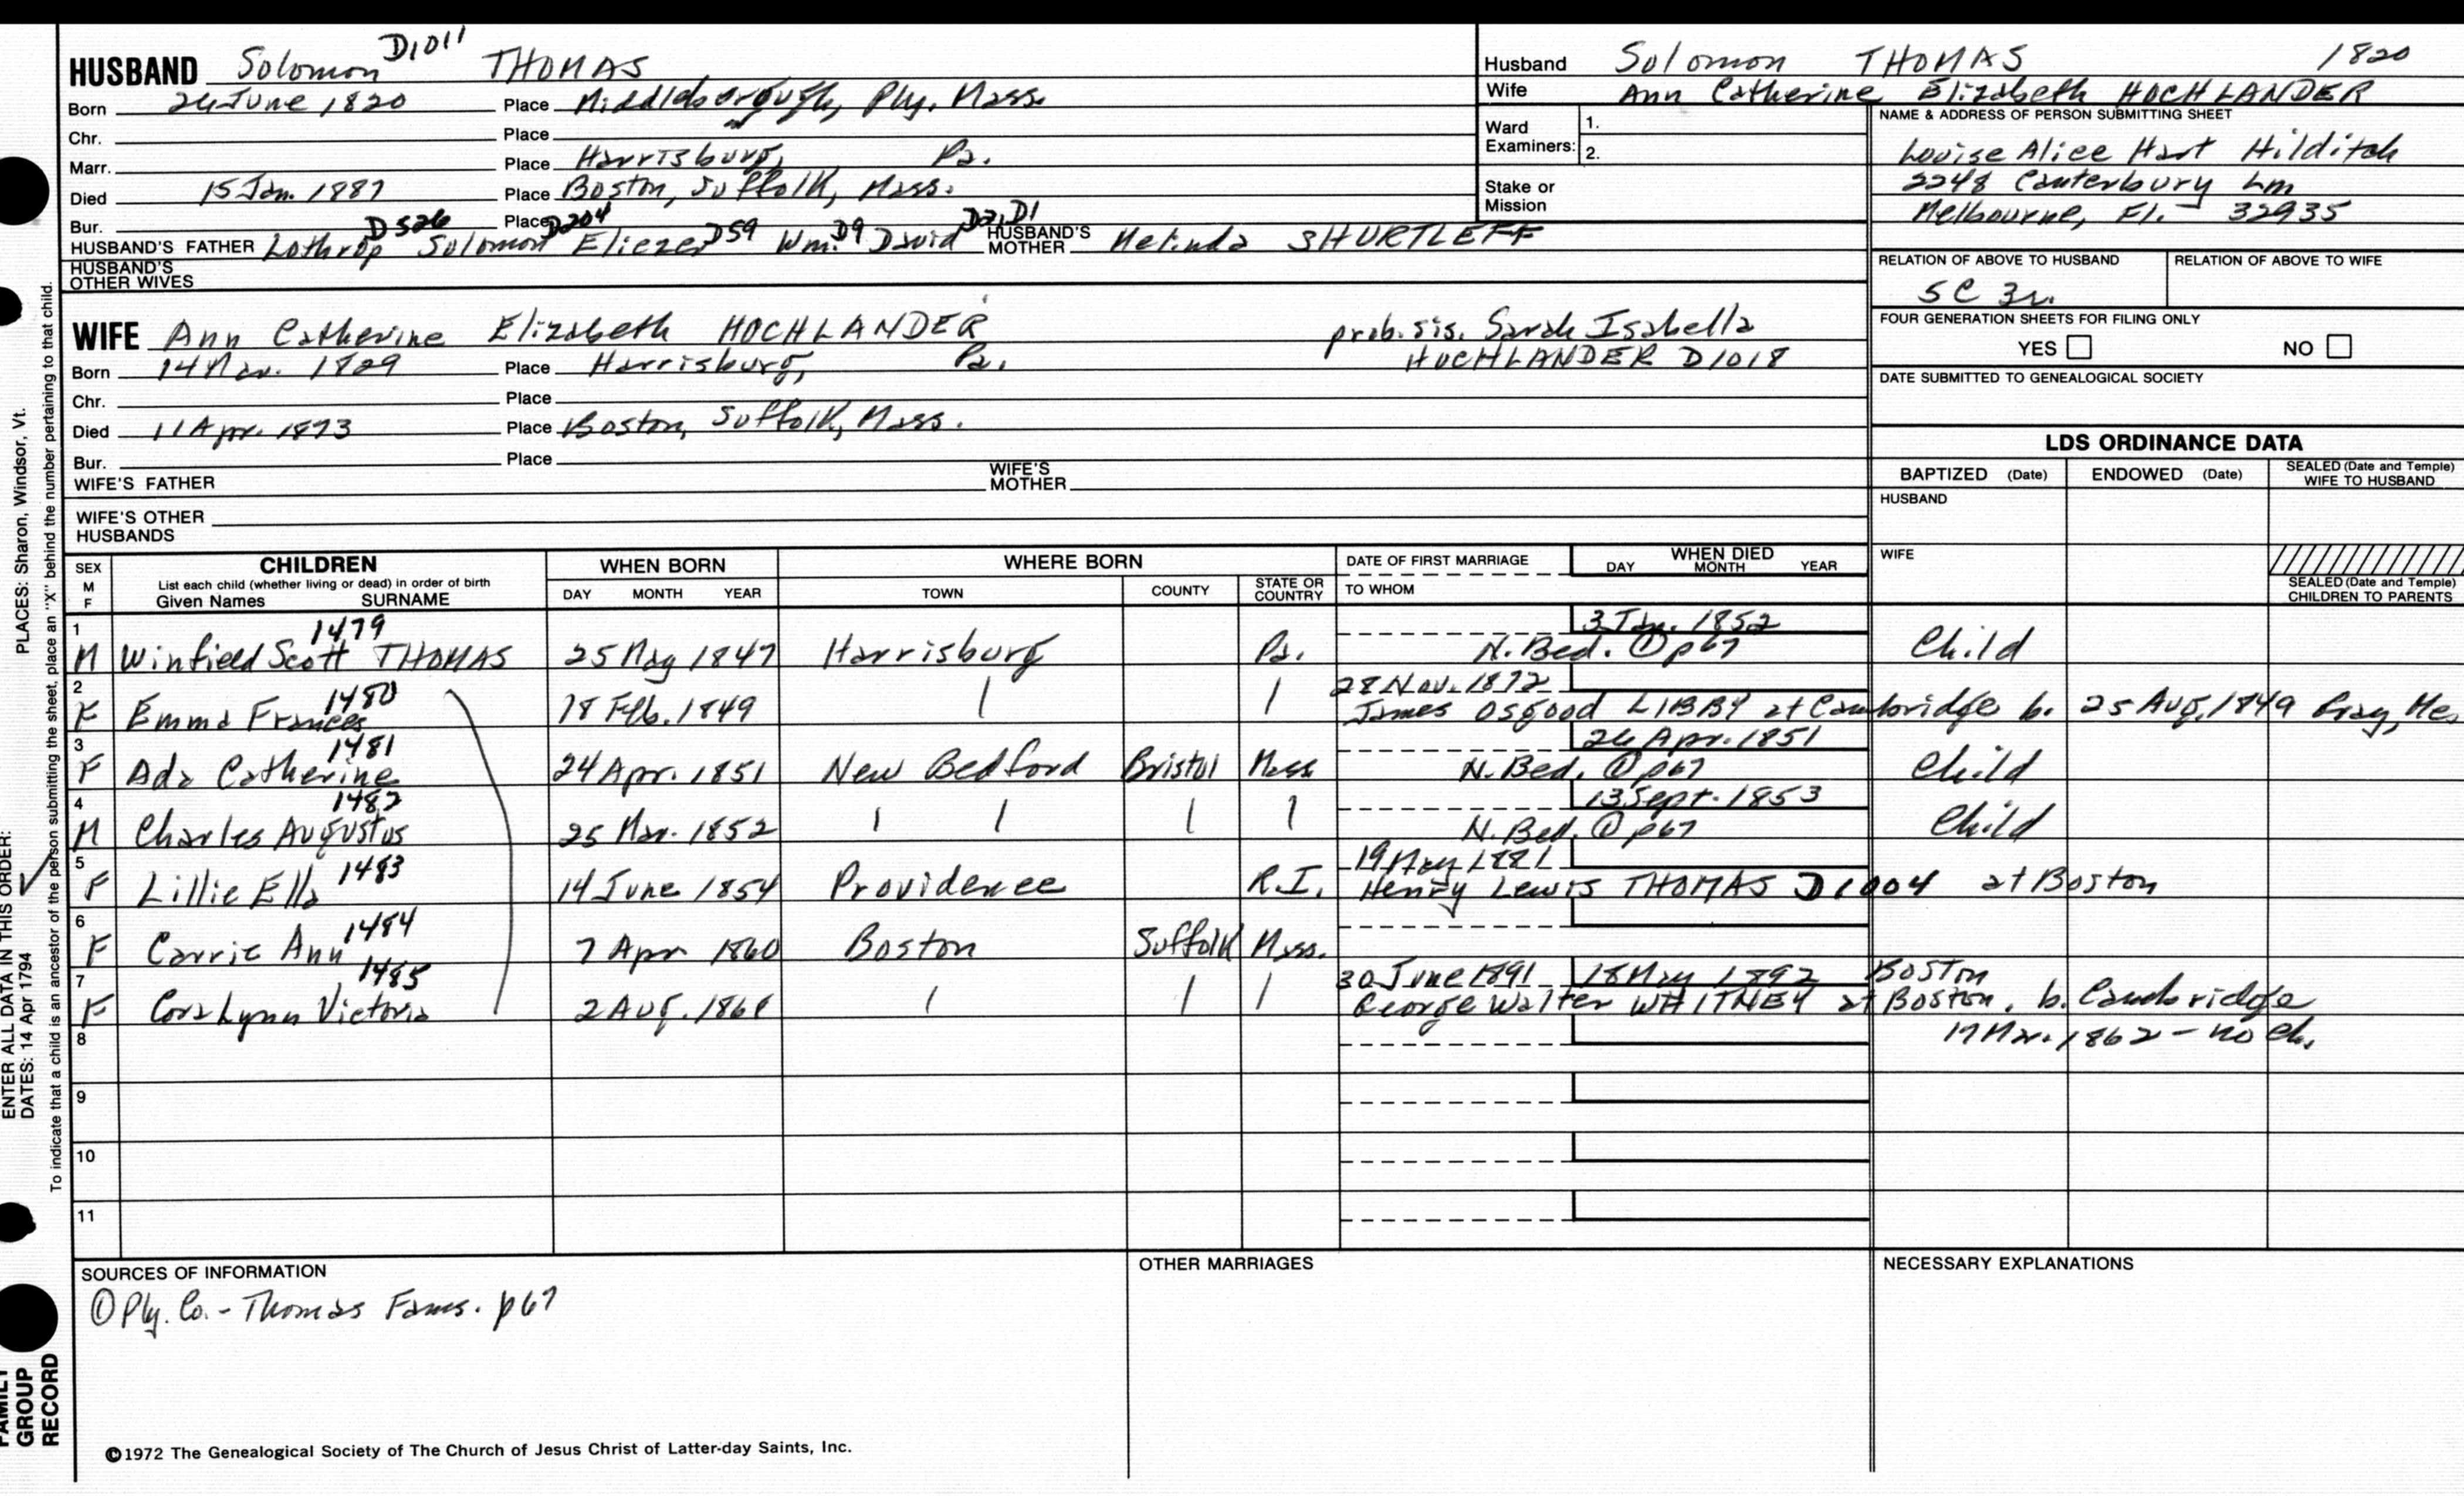 D1011
HUSBAND Solomon THOMAS
Born 26 June 1820 Place Middleborough, Ply. Mass.
Chr. Place
Marr. Place Harrisburg, Pa.
Died 15 Jan. 1887 Place Boston, Suffolk, Mass.
Bur. Place
D526 D204 D59 D9 D2, D1
HUSBAND'S FATHER Lothrop Solomon Eliezer Wm. David HUSBAND'S MOTHER Melinda SHURTLEFF
HUSBAND'S OTHER WIVES
WIFE Ann Catherine Elizabeth HOCHLANDER prob. sis. Sarah Isabella
HOCHLANDER D1018
Born 14 Mar. 1829 Place Harrisburg, Pa.
Chr. Place
Died 11 Apr. 1893 Place Boston, Suffolk, Mass.
Bur. Place
WIFE'S FATHER WIFE'S MOTHER
WIFE'S OTHER HUSBANDS
Husband Solomon THOMAS 1820
Wife Ann Catherine Elizabeth HOCHLANDER
Ward Examiners: 1.
2.
Stake or Mission
NAME & ADDRESS OF PERSON SUBMITTING SHEET
Louise Alice Hart Hilditch
2248 Canterbury Ln
Melbourne, Fl. 32935
RELATION OF ABOVE TO HUSBAND RELATION OF ABOVE TO WIFE
5C 3r.
FOUR GENERATION SHEETS FOR FILING ONLY
YES NO
DATE SUBMITTED TO GENEALOGICAL SOCIETY
LDS ORDINANCE DATA
BAPTIZED (Date) ENDOWED (Date) SEALED (Date and Temple) WIFE TO HUSBAND
HUSBAND
WIFE
SEALED (Date and Temple) CHILDREN TO PARENTS
SEX M F CHILDREN WHEN BORN WHERE BORN DATE OF FIRST MARRIAGE WHEN DIED
List each child (whether living or dead) in order of birth
Given Names SURNAME DAY MONTH YEAR TOWN COUNTY STATE OR COUNTRY TO WHOM DAY MONTH YEAR
1 1479 3 Jan. 1852
M Winfield Scott THOMAS 25 May 1847 Harrisburg Pa. N. Bed. ① p67 Child
2 1480 28 Nov. 1872
F Emma Frances 18 Feb. 1849 | | James Osgood LIBBY at Cambridge b. 25 Aug. 1849 Gray, Me.
3 1481 26 Apr. 1851
F Ada Catherine 24 Apr. 1851 New Bedford Bristol Mass N. Bed. ① p67 Child
4 1482 13 Sept. 1853
M Charles Augustus 25 Mar. 1852 | | | | N. Bed. ① p67 Child
5 1483 19 May 1881
F Lillie Ella 14 June 1854 Providence R.I. Henry Lewis THOMAS D1004 at Boston
6 1484
F Carrie Ann 7 Apr 1860 Boston Suffolk Mass.
7 1485 30 June 1891 18 May 1892 Boston
F Cora Lynn Victoria 2 Aug. 1861 | | | George Walter WHITNEY at Boston, b. Cambridge
8 17 Mar. 1862 - no ch.
9
10
11
SOURCES OF INFORMATION
① Ply. Co. - Thomas Fams. p67
OTHER MARRIAGES
NECESSARY EXPLANATIONS
©1972 The Genealogical Society of The Church of Jesus Christ of Latter-day Saints, Inc.
ENTER ALL DATA IN THIS ORDER:
DATES: 14 Apr 1794 PLACES: Sharon, Windsor, Vt.
To indicate that a child is an ancestor of the person submitting the sheet, place an "X" behind the number pertaining to that child.
FAMILY
GROUP
RECORD